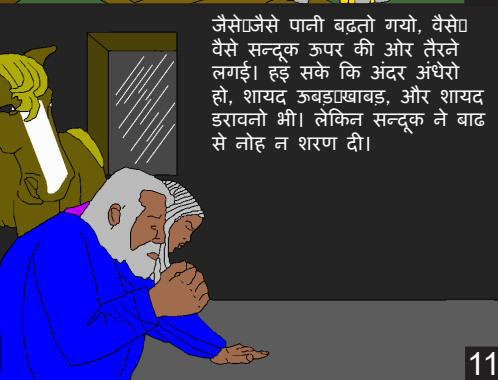 जैसे▯जैसे पानी बढ़तो गयो, वैसे▯
वैसे सन्दूक ऊपर की ओर तैरने
लगई। हइ सके कि अंदर अंधेरो
हो, शायद ऊबड़▯खाबड़, और शायद
डरावनो भी। लेकिन सन्दूक ने बाढ
से नोह न शरण दी।
11